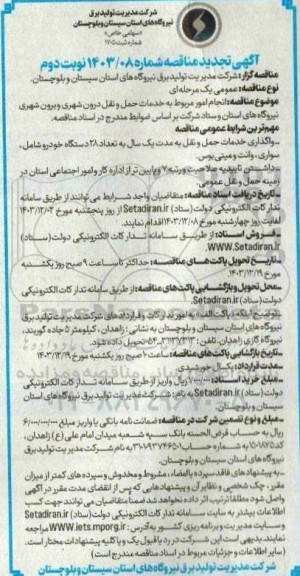 شرکت مدیریت تولید برق
نیروگاه های استان سیستان وبلوچستان
«سهامی خاص»
شماره ثبت ۱۷۰۵
آگهی تجدید مناقصه شماره ۱۴۰۳/۰۸ نوبت دوم
مناقصه گزار: شرکت مدیریت تولید برق نیروگاه های استان سیستان و بلوچستان.
نوع مناقصه: عمومی یک مرحله ای
موضوع مناقصه: انجام امور مربوط به خدمات حمل و نقل درون شهری و برون شهری
نیروگاه های استان و ستاد شرکت بر اساس ضوابط مندرج در اسناد مناقصه.
مهم ترین شرایط عمومی مناقصه
_واگذاری خدمات حمل و نقل به مدت یک سال به تعداد ۲۸ دستگاه خودرو شامل،
سواری، وانت و مینی بوس.
_داشتن تاییدیه صلاحیت و رتبه ۷ و پایین تر از اداره کار و امور اجتماعی استان در
زمینه حمل و نقل عمومی.
_تاریخ دریافت اسناد مناقصه: متقاضیان واجد شرایط می توانند از طریق سامانه
تدارکات الکترونیکی دولت (ستاد) Setadiran.ir از روز پنجشنبه مورخ ۱۴۰۳/۱۲/۰۲
لغایت روز چهارشنبه مورخ ۱۴۰۳/۱۲/۰۸ اقدام نمایند.
_فروش اسناد: از طریق سامانه تدارکات الکترونیکی دولت (ستاد)
WWW.Setadiran.ir.
_تاریخ تحویل پاکت های مناقصه: حداکثر تا ساعت ۹ صبح روز یکشنبه
مورخ ۱۴۰۳/۱۲/۱۹
_محل تحویل و بازگشایی پاکت های مناقصه: از طریق سامانه تدارکات الکترونیکی
دولت (ستاد) Setadiran.ir.
بتوضیح اینکه (پاکت الف) به امور تدارکات و قراردادهای شرکت مدیریت تولید برق
نیروگاه های سیستان و بلوچستان به نشانی: زاهدان، کیلومتر ۵ جاده گوربند،
نیروگاه گازی زاهدان، تلفن: تحویل داده شود.
_تاریخ بازگشایی پاکت های مناقصه: ساعت ۱۰ صبح روز یکشنبه مورخ ۱۴۰۳/۱۲/۱۹
_مدت قرارداد: یکسال خورشیدی
_مبلغ خرید اسناد: ۷۰۰/۰۰۰ ریال واریز از طریق سامانه تدارکات الکترونیکی
دولت (ستاد) Setadiran.ir به نام: شرکت مدیریت تولید برق نیروگاه های استان
سیستان و بلوچستان.
_مبلغ و نوع تضمین شرکت در مناقصه: ضمانت نامه بانکی یا واریز مبلغ ۶/۰۰۰/۰۰۰/۰۰۰
ریال به حساب قرض الحسنه بانک سپه شعبه میدان امام علی (ع) زاهدان،
کد ۷۵۰۱۸ به شماره حساب به نام شرکت مدیریت تولید برق
نیروگاه های استان سیستان و بلوچستان.
_به پیشنهادهای فاقد سپرده یا امضاء، مشروط و مخدوش و سپرده های کمتر از میزان
مقرر، چک شخصی و نظایر آن و پیشنهادهایی که پس از انقضای مدت مقرر در آگهی
واصل شود مطلقا ترتیب اثر داده نخواهد شد. ضمنا متقاضیان می توانند جهت کسب
اطلاعات بیشتر به سایت سامانه تدارکات الکترونیکی دولت (ستاد) Setadiran.ir
و سایت مدیریت و برنامه ریزی کشور به آدرس: WWW.iets.mporg.ir مراجعه
نمایند. بدیهی است این شرکت در رد یا قبول یک و یا کلیه پیشنهادات مختار است.
(سایر اطلاعات و جزئیات مربوط در اسناد مناقصه مندرج است)
شرکت مدیریت تولید برق نیروگاه های استان سیستان و بلوچستان